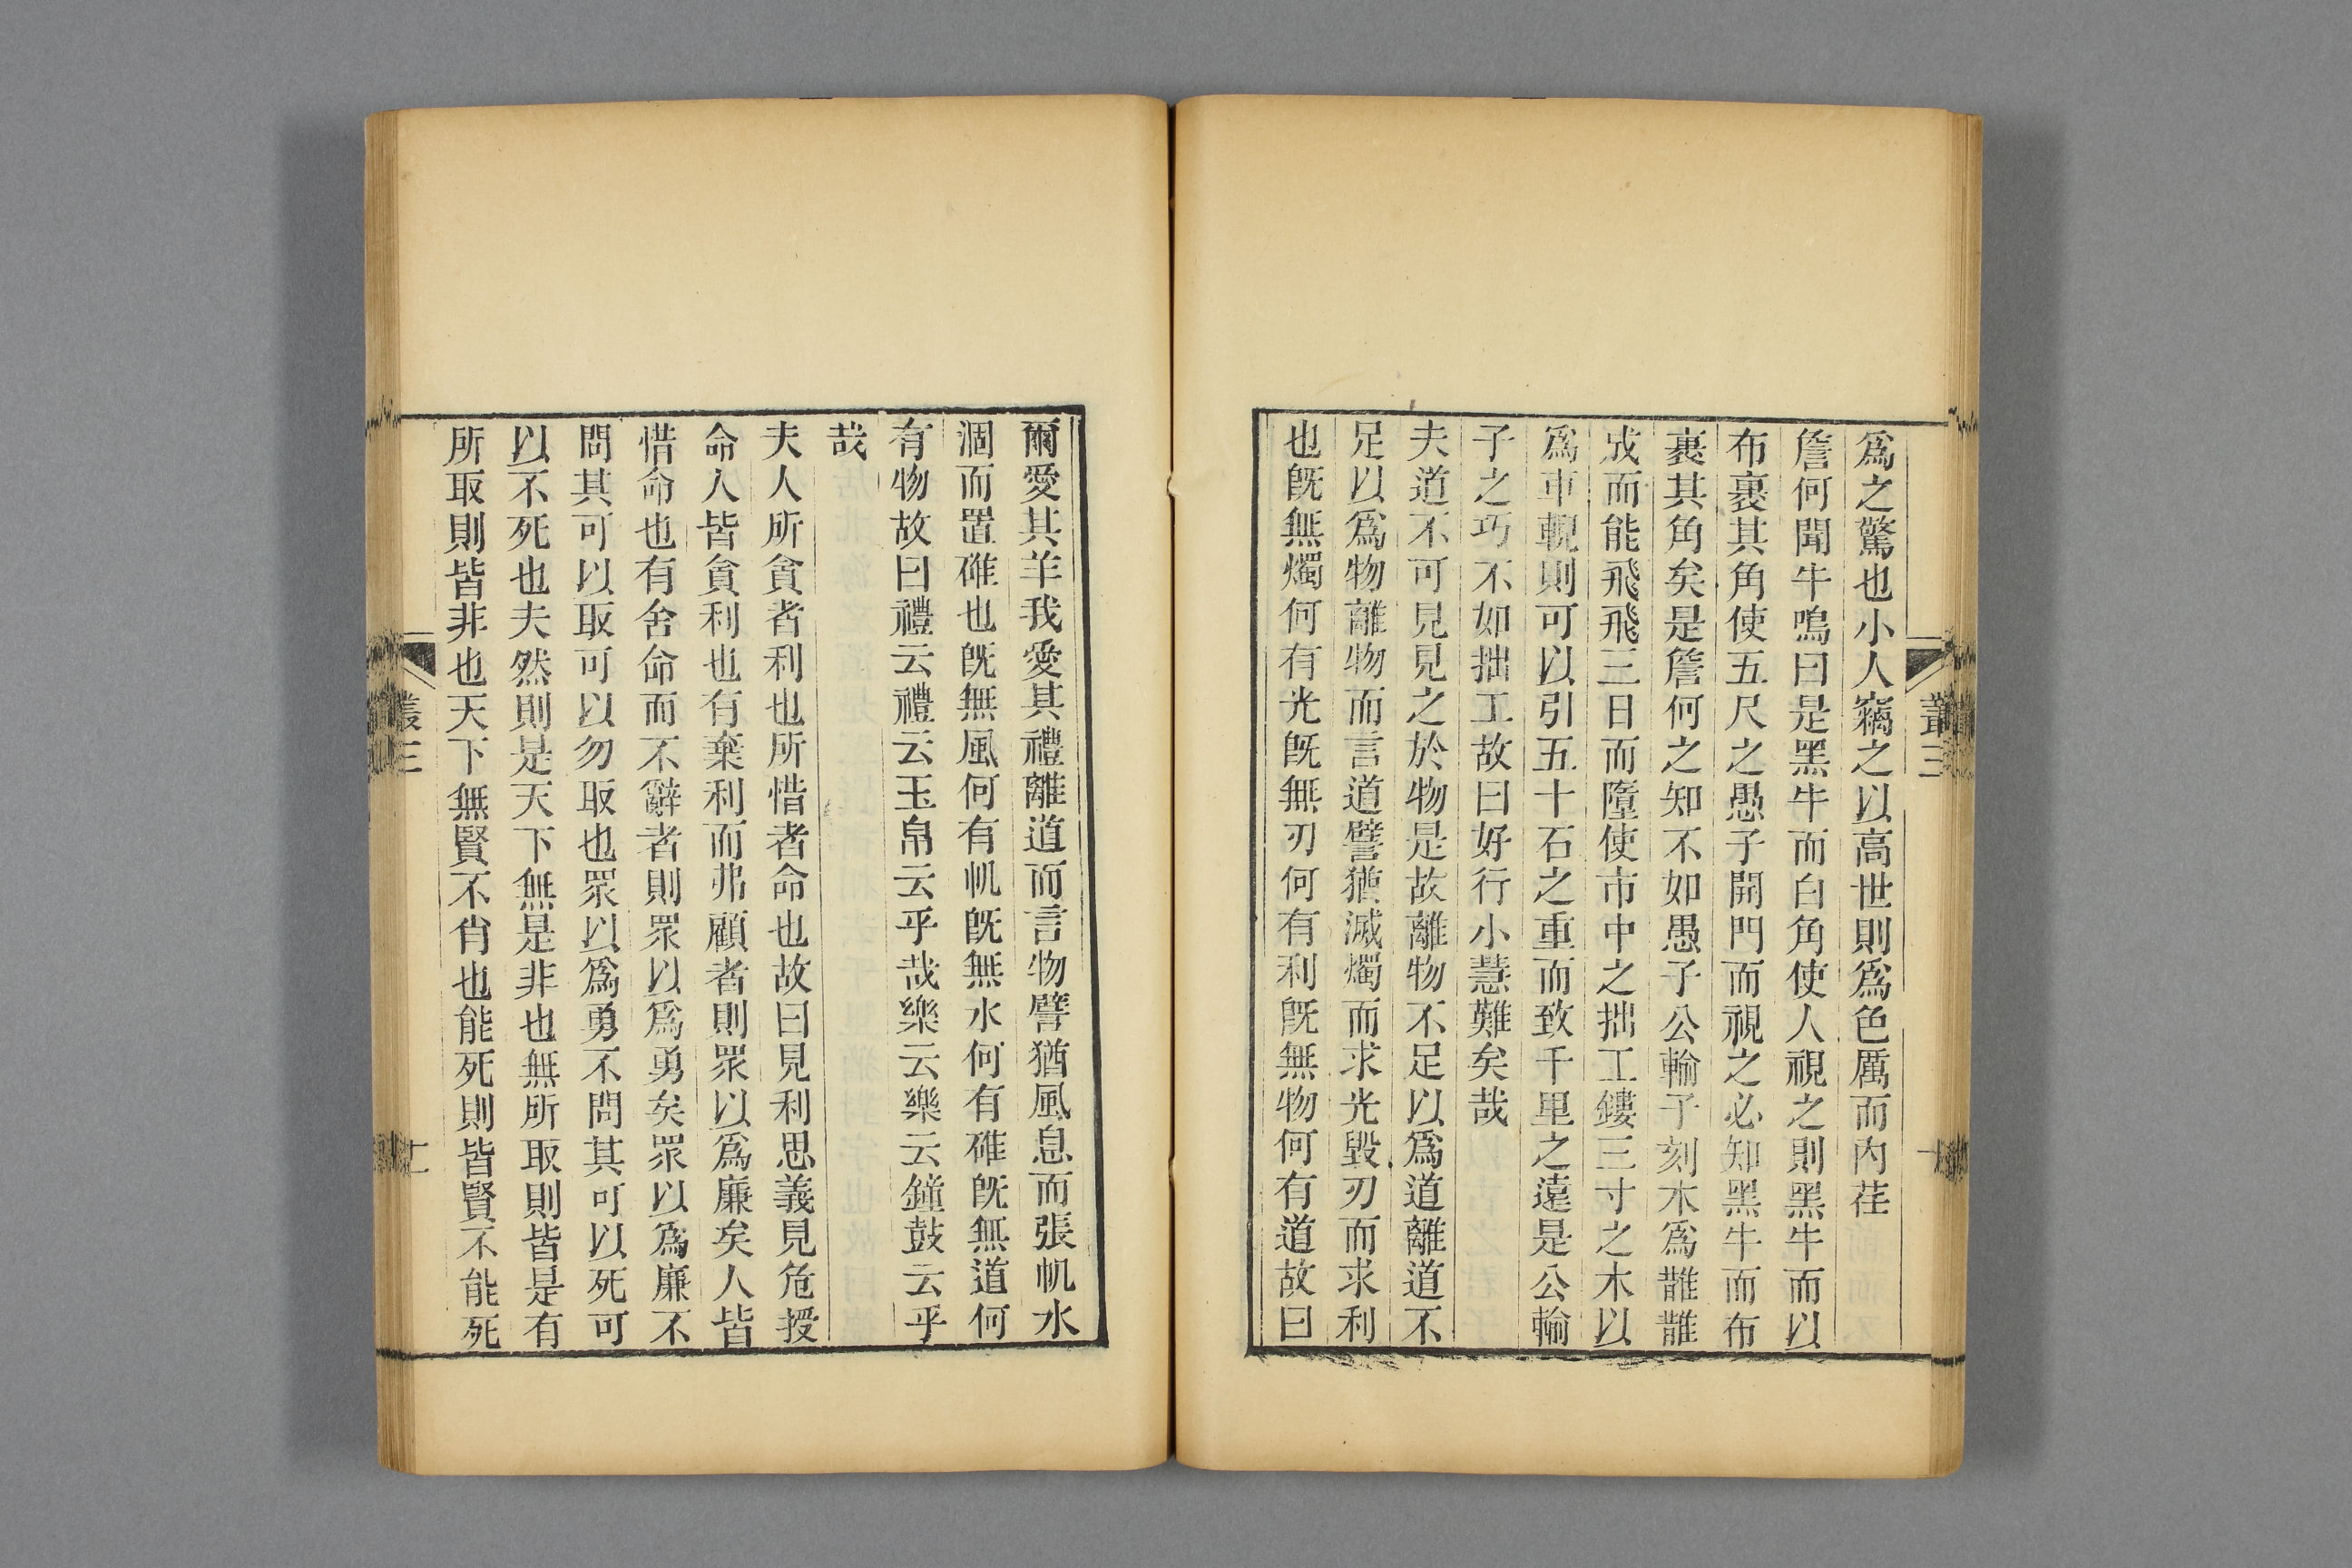 爲之驚也小人竊之以高世則爲色厲而內荏
詹何聞牛鳴曰是黑牛而白角使人視之則黑牛而以
布裹其角使五尺之愚子開門而視之必知黑牛而布
裹其角矣是詹何之知不如愚子公輸子刻木爲䧿䧿
成而能飛飛三日而墮使市中之拙工鏤三寸之木以
爲車輗則可以引五十石之重而致千里之遠是公輸
子之巧不如拙工故曰好行小慧難矣哉
夫道不可見見之於物是故離物不足以爲道離道不
足以爲物離物而言道譬猶滅燭而求光毀刃而求利
也旣無燭何有光旣無刃何有利旣無物何有道故曰
叢三
爾愛其羊我愛其禮離道而言物譬猶風息而張帆水
涸而置碓也旣無風何有帆旣無水何有碓旣無道何
有物故曰禮云禮云玉帛云乎哉樂云樂云鐘鼓云乎
哉
夫人所貪者利也所惜者命也故曰見利思義見危授
命人皆貪利也有棄利而弗顧者則眾以爲廉矣人皆
惜命也有舍命而不辭者則眾以爲勇矣眾以爲廉不
問其可以取可以勿取也眾以爲勇不問其可以死可
以不死也夫然則是天下無是非也無所取則皆是有
所取則皆非也天下無賢不肖也能死則皆賢不能死
叢三